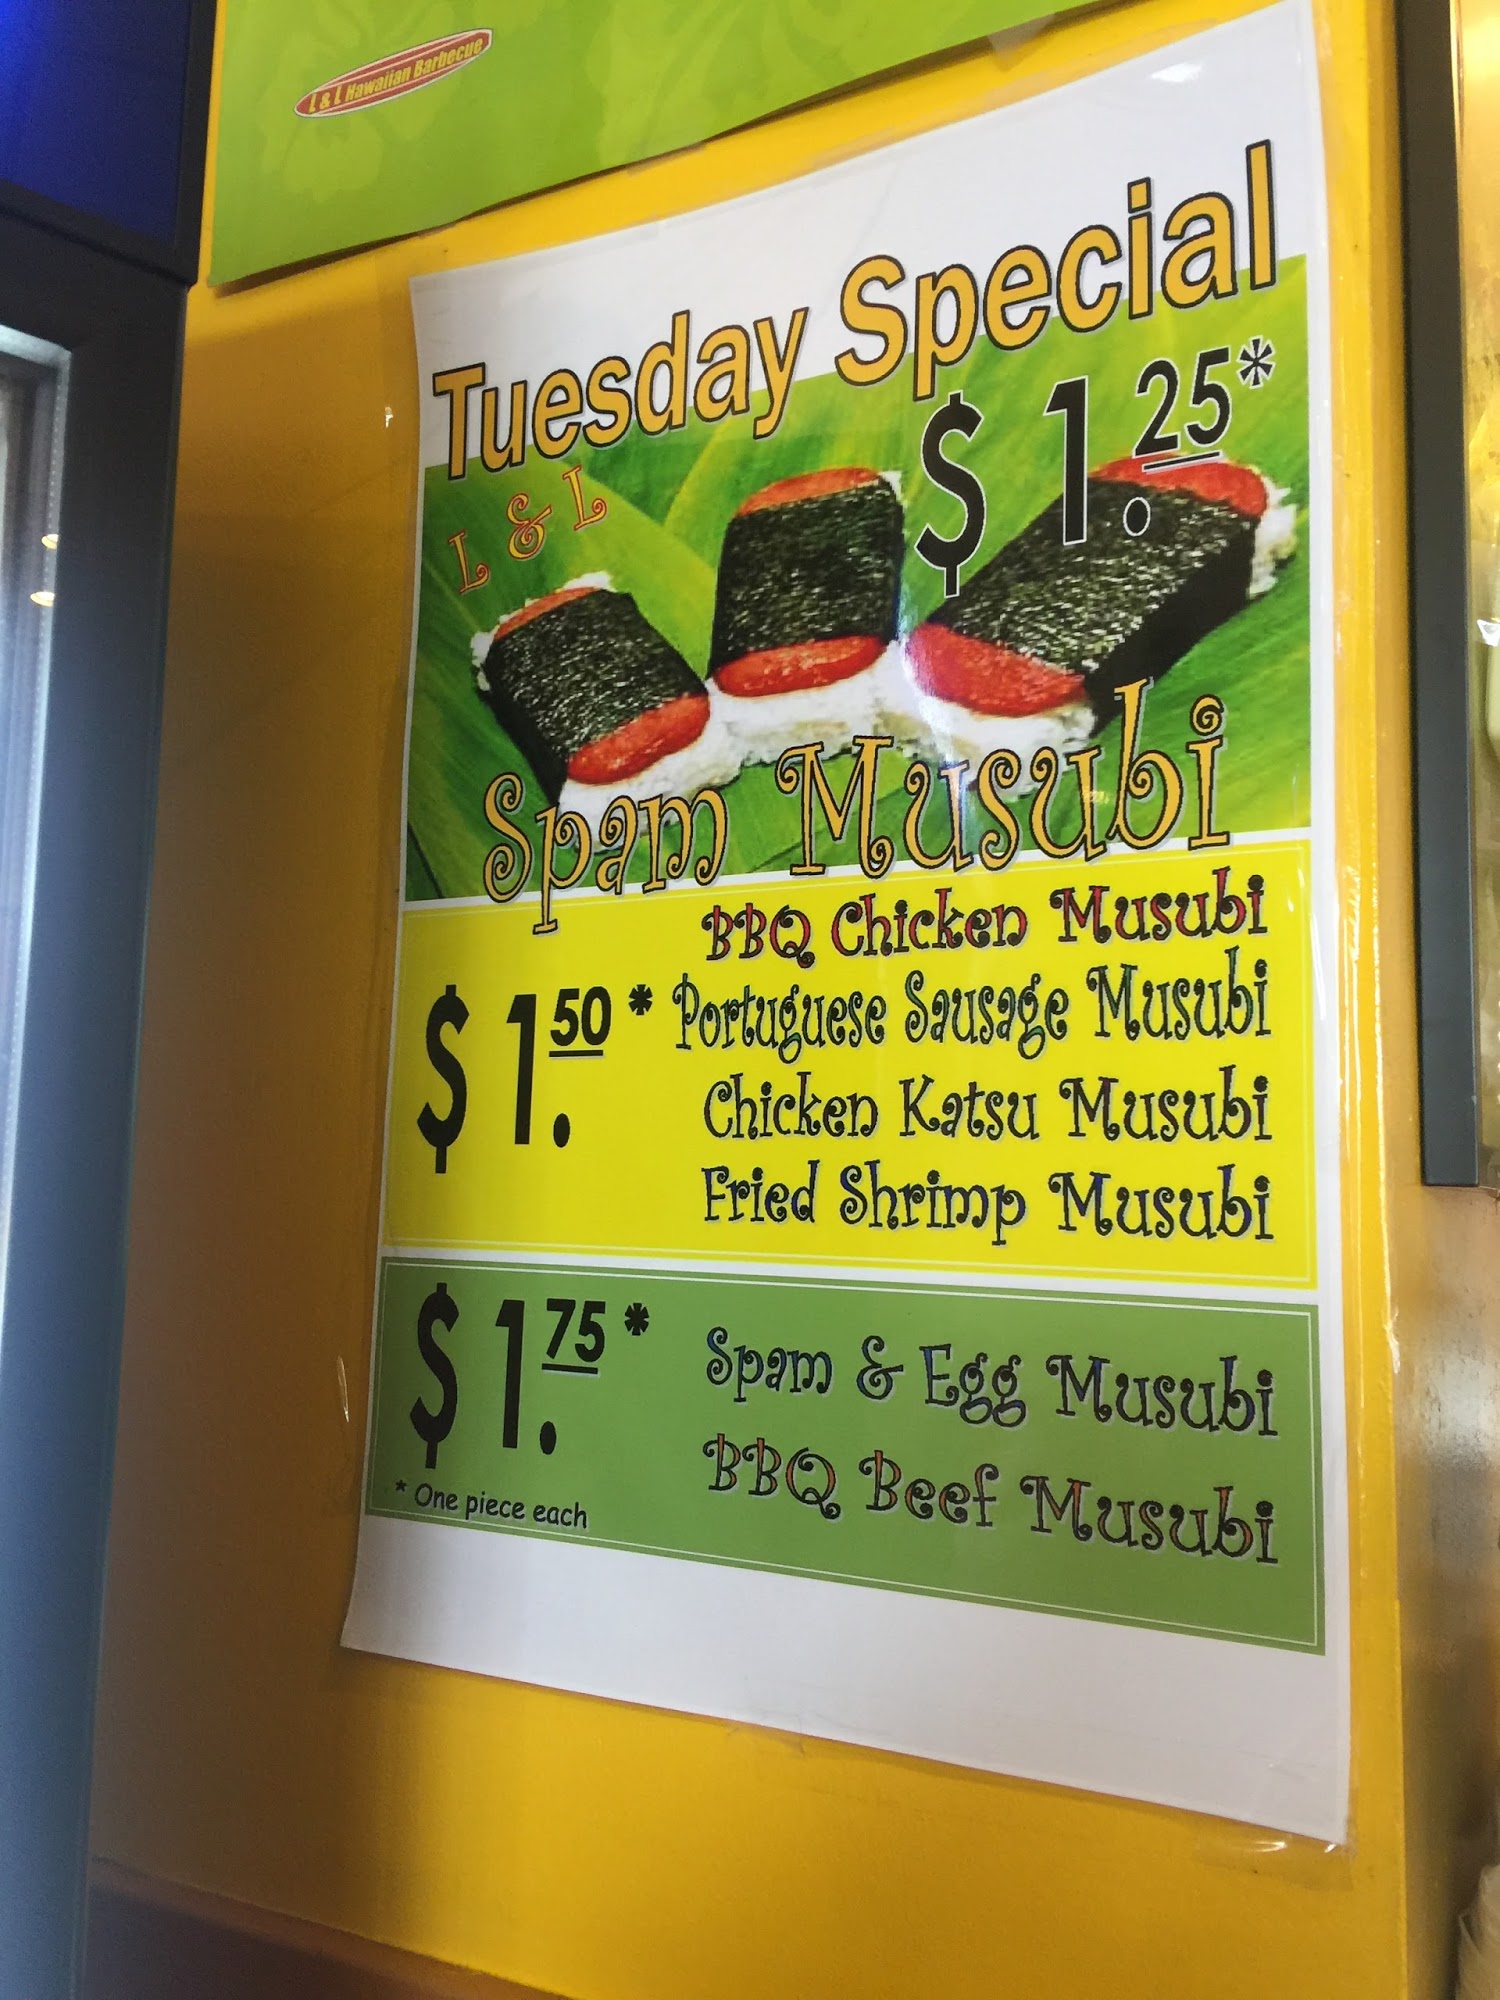 L & L Hawaiian Barbecue
Tuesday Special
$ 1.25*
L & L
Spam Musubi
BBQ Chicken Musubi
$ 1.50 * Portuguese Sausage Musubi
Chicken Katsu Musubi
Fried Shrimp Musubi
$ 1.75 * Spam & Egg Musubi
BBQ Beef Musubi
* One piece each